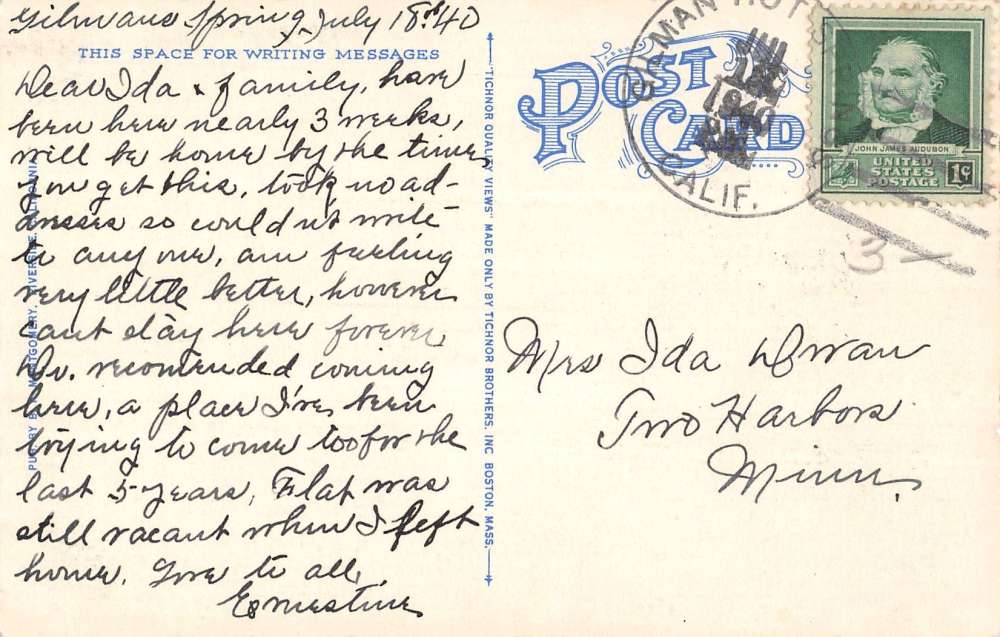 Gilmans Spring, July 18th 40
THIS SPACE FOR WRITING MESSAGES
Dear Ida & family, have
been here nearly 3 weeks,
will be home by the time
you get this, took no ad-
dresses so could nt write
to any one, am feeling
very little better, however
cant stay here forever
Dr. recomended coming
here, a place I've been
trying to come too for the
last 5 years, Flat was
still vacant when I left
home. Love to all,
Ernestine
PUB. BY MONTGOMERY, RIVERSIDE, CALIFORNIA
"TICHNOR QUALITY VIEWS" MADE ONLY BY TICHNOR BROTHERS, INC BOSTON, MASS.
POST CARD
GILMAN HOT SPRINGS
JUL
1940
CALIF.
JOHN JAMES AUDUBON
UNITED
STATES
POSTAGE
1¢
3
Mrs Ida
Two Harbors
Minn.